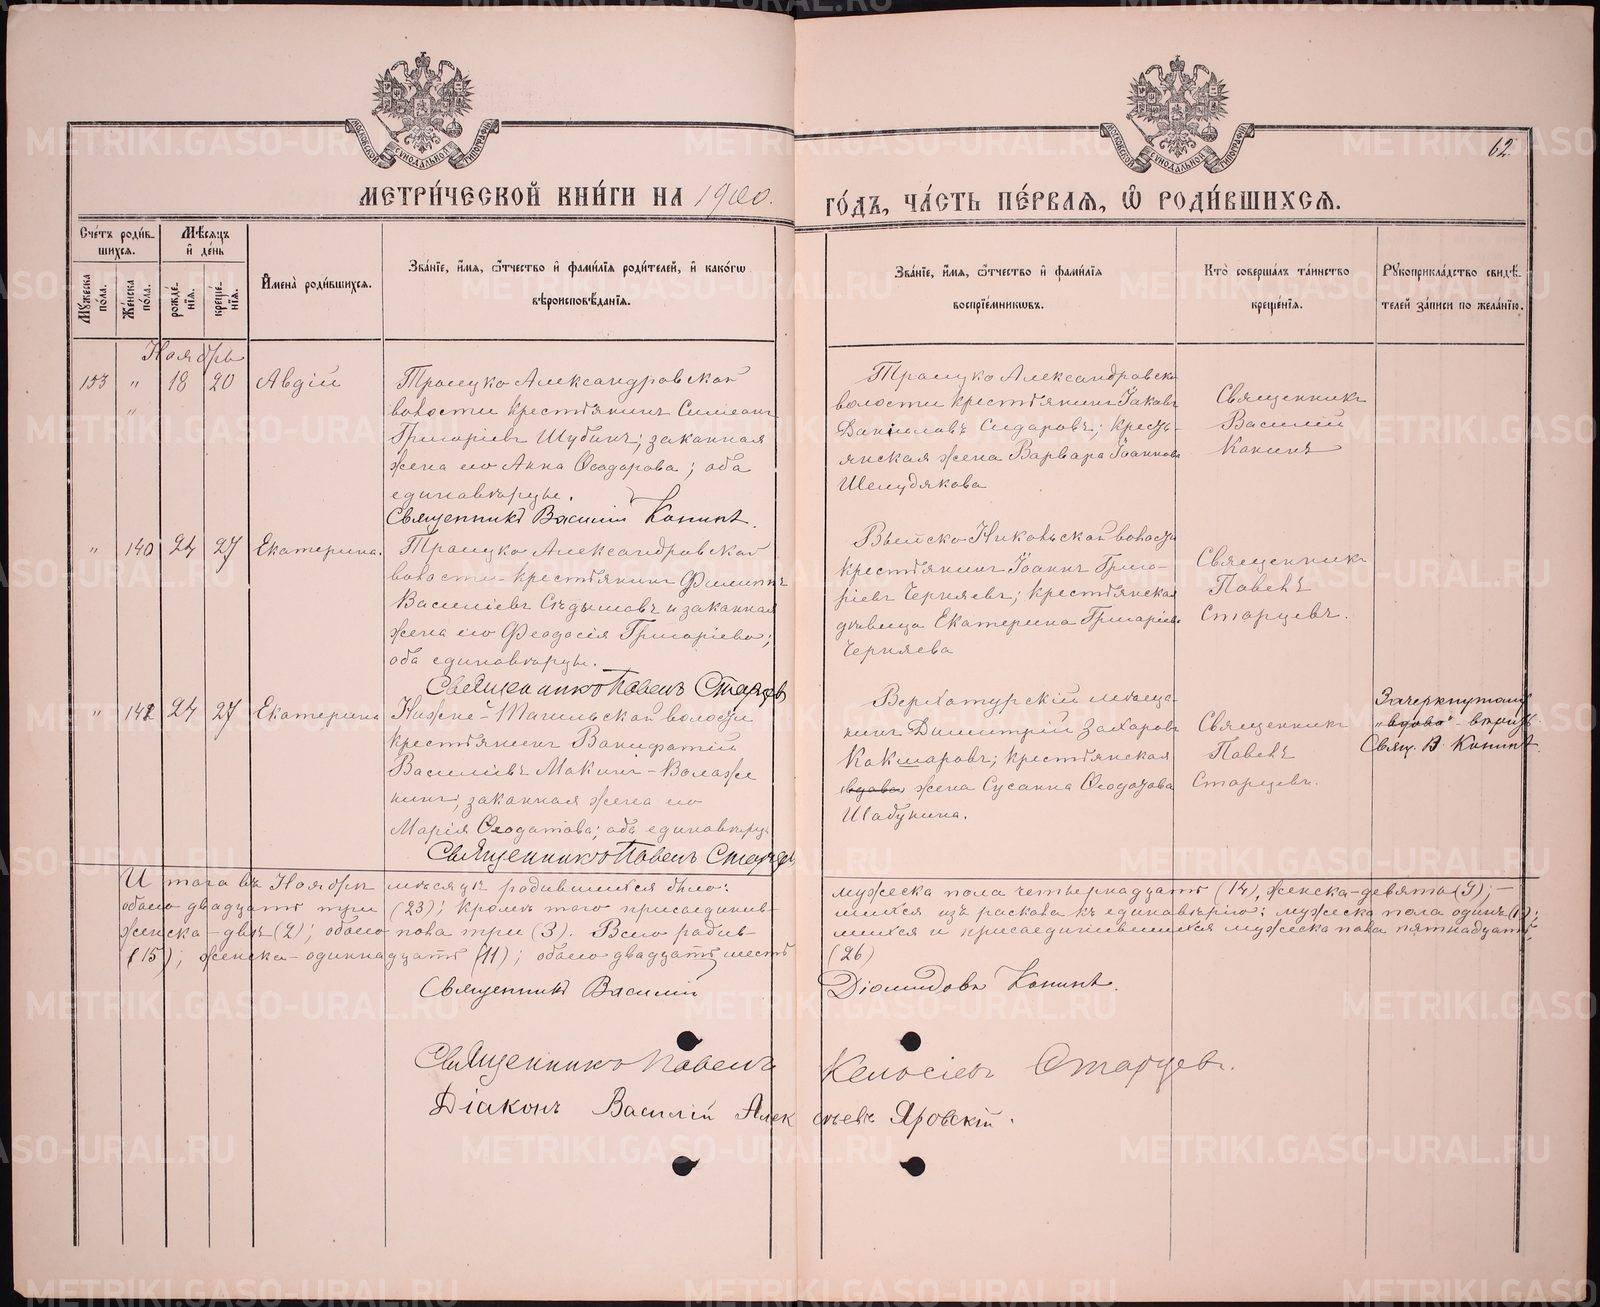 МОСКОВСКОЙ СУНОДАЛЬНОЙ ТИПОГРАФІИ
МОСКОВСКОЙ СУНОДАЛЬНОЙ ТИПОГРАФІИ
62.
МЕТРИ́ЧЕСКОЙ КНИ́ГИ НА 1900.
ГО́ДЪ, ЧА́СТЬ ПЕ́РВАЯ, Ѽ РОДИ́ВШИХСЯ.
Сче́тъ роди́в-
шихся.
Мѣ́сяцъ
и҆ де́нь
Му́жеска
по́ла.
Же́нска
по́ла.
рожде́-
нїя.
креще́-
нїя.
И҆мена̀ роди́вшихся.
Зва́нїе, и҆́мя, ѻ҆́тчество и҆ фами́лїя роди́телей, и҆ како́гѡ
вѣроисповѣ́данїя.
Зва́нїе, и҆́мя, ѻ҆́тчество и҆ фами́лїя
воспрїе́мникѡвъ.
Кто̀ соверша́лъ та́инство
креще́нїя.
Рꙋкоприкла́дство свидѣ́-
телей за́писи по жела́нїю.
Ноябрь
153 " 18 20 Авдій
Троицко Александровской
волости крестьянинъ Симеонъ
Григоріевъ Шубинъ; законная
жена его Анна Ѳеодорова; оба
единовѣрцы.
Священникъ Василій Конинъ.
Троицко Александровской
волости крестьянинъ Іаковъ
Даніиловъ Сидоровъ; кресть-
янская жена Варвара Іоаннова
Шелудякова
Священникъ
Василій
Конинъ
" 140 24 27 Екатерина.
Троицко Александровской
волости крестьянинъ Филиппъ
Василіевъ Сѣдышовъ и законная
жена его Ѳеодосія Григоріева;
оба единовѣрцы.
Священникъ Павелъ Старцев
Выйско-Никольской волости
крестьянинъ Іоаннъ Григо-
ріевъ Черняевъ; крестьянская
дѣвица Екатерина Григоріева
Черняева
Священникъ
Павелъ
Старцевъ.
" 141 24 27 Екатерина
Нижне-Тагильской волости
крестьянинъ Вонифатій
Василіевъ Макинъ-Воложе
нинъ, законная жена его
Марія Ѳеодотова; оба единовѣрцы
Священникъ Павелъ Старцев
Верхотурскій мѣща-
нинъ Димитрій Захаровъ
Кокшаровъ; крестьянская
вдова жена Сусанна Ѳеодотова
Шабунина.
Священникъ
Павелъ
Старцевъ.
Зачеркнутому
"вдова" - вѣрить.
Свящ. В. Конинъ
Итого въ Ноябрѣ мѣсяцѣ родившихся было: мужеска пола четырнадцать (14), женска-девять (9); —
обоего двадцать три (23); кромѣ того присоединив- шихся изъ раскола къ единовѣрію: мужеска пола одинъ (1);
женска-двѣ (2); обоего пола три (3). Всего родив- шихся и присоединившихся мужеска пола пятнадцать
(15); женска-одиннадцать (11); обоего двадцать шесть (26)
Священникъ Василій Діомидовъ Конинъ.
Священникъ Павелъ Келсіевъ Старцевъ.
Діаконъ Василій Алексѣевъ Яровскій.
METRIKI.GASO-URAL.RU